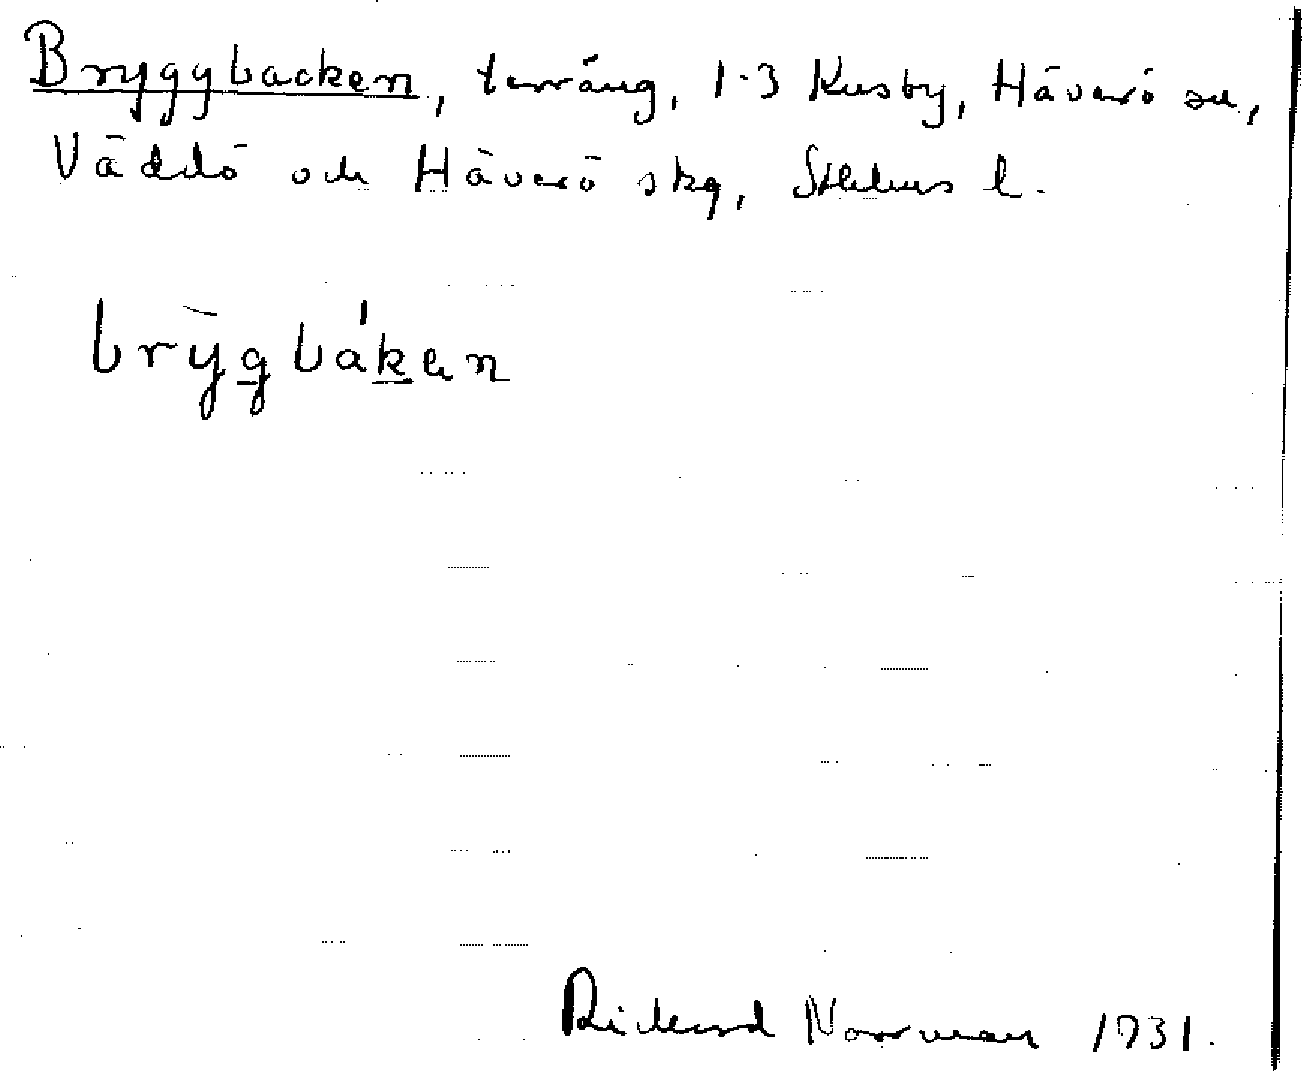 Bryggbacken, terräng, 1-3 Kusby, Häverö sn,
Väddö och Häverö skg, Sthlms l.
brỳgbákən
Rickard Norrman 1931.